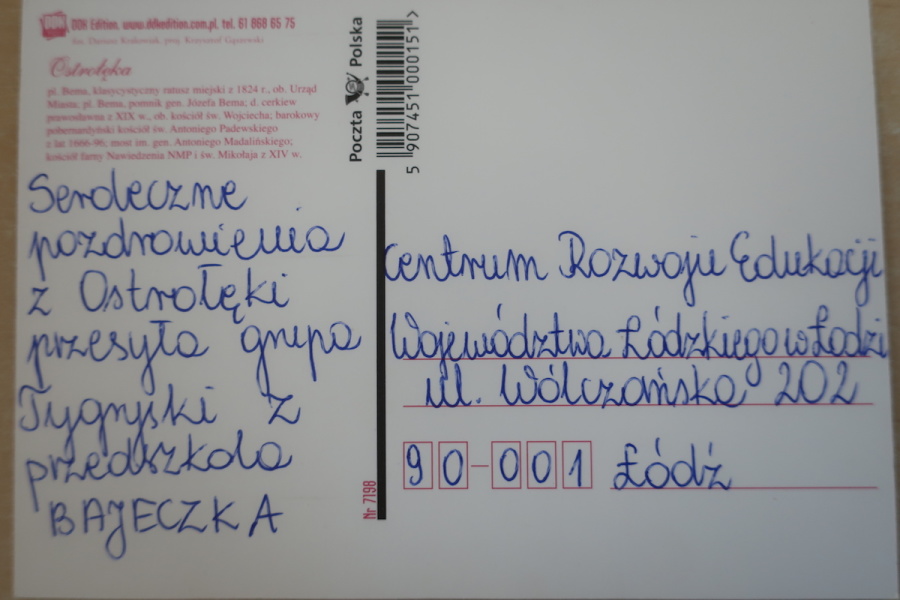 DDK Edition, www.ddkedition.com.pl, tel. 61 868 65 75
Ostrołęka
pl. Bema, klasycystyczny ratusz miejski z 1824 r., ob. Urząd
Miasta; pl. Bema, pomnik gen. Józefa Bema; d. cerkiew
prawosławna z XIX w., ob. kościół św. Wojciecha; barokowy
pobernardyński kościół św. Antoniego Padewskiego
z lat 1666-96; most im. gen. Antoniego Madalińskiego;
kościół farny Nawiedzenia NMP i św. Mikołaja z XIV w.
Serdeczne
pozdrowienia
z Ostrołęki
przesyła grupa
Tygryski z
przedszkola
BAJECZKA
Poczta Polska
5 907451 000151 >
Nr 7198
Centrum Rozwoju Edukacji
Województwa Łódzkiego w Łodzi
ul. Wólczańska 202
90-001 Łódź